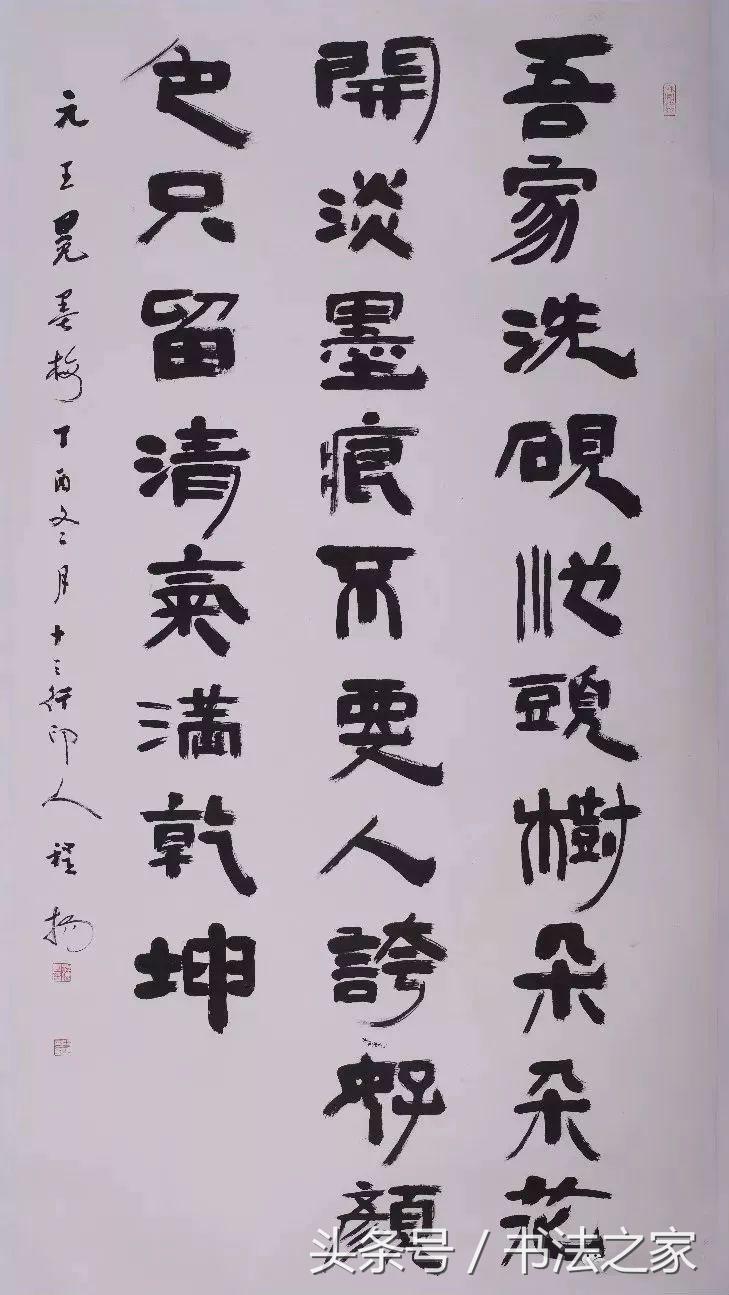 吾家洗硯池頭樹朵朵花
開淡墨痕不要人誇好顏
色只留清氣滿乾坤
元王冕墨梅丁酉冬二月十三行印人程揚
头条号 / 书法之家